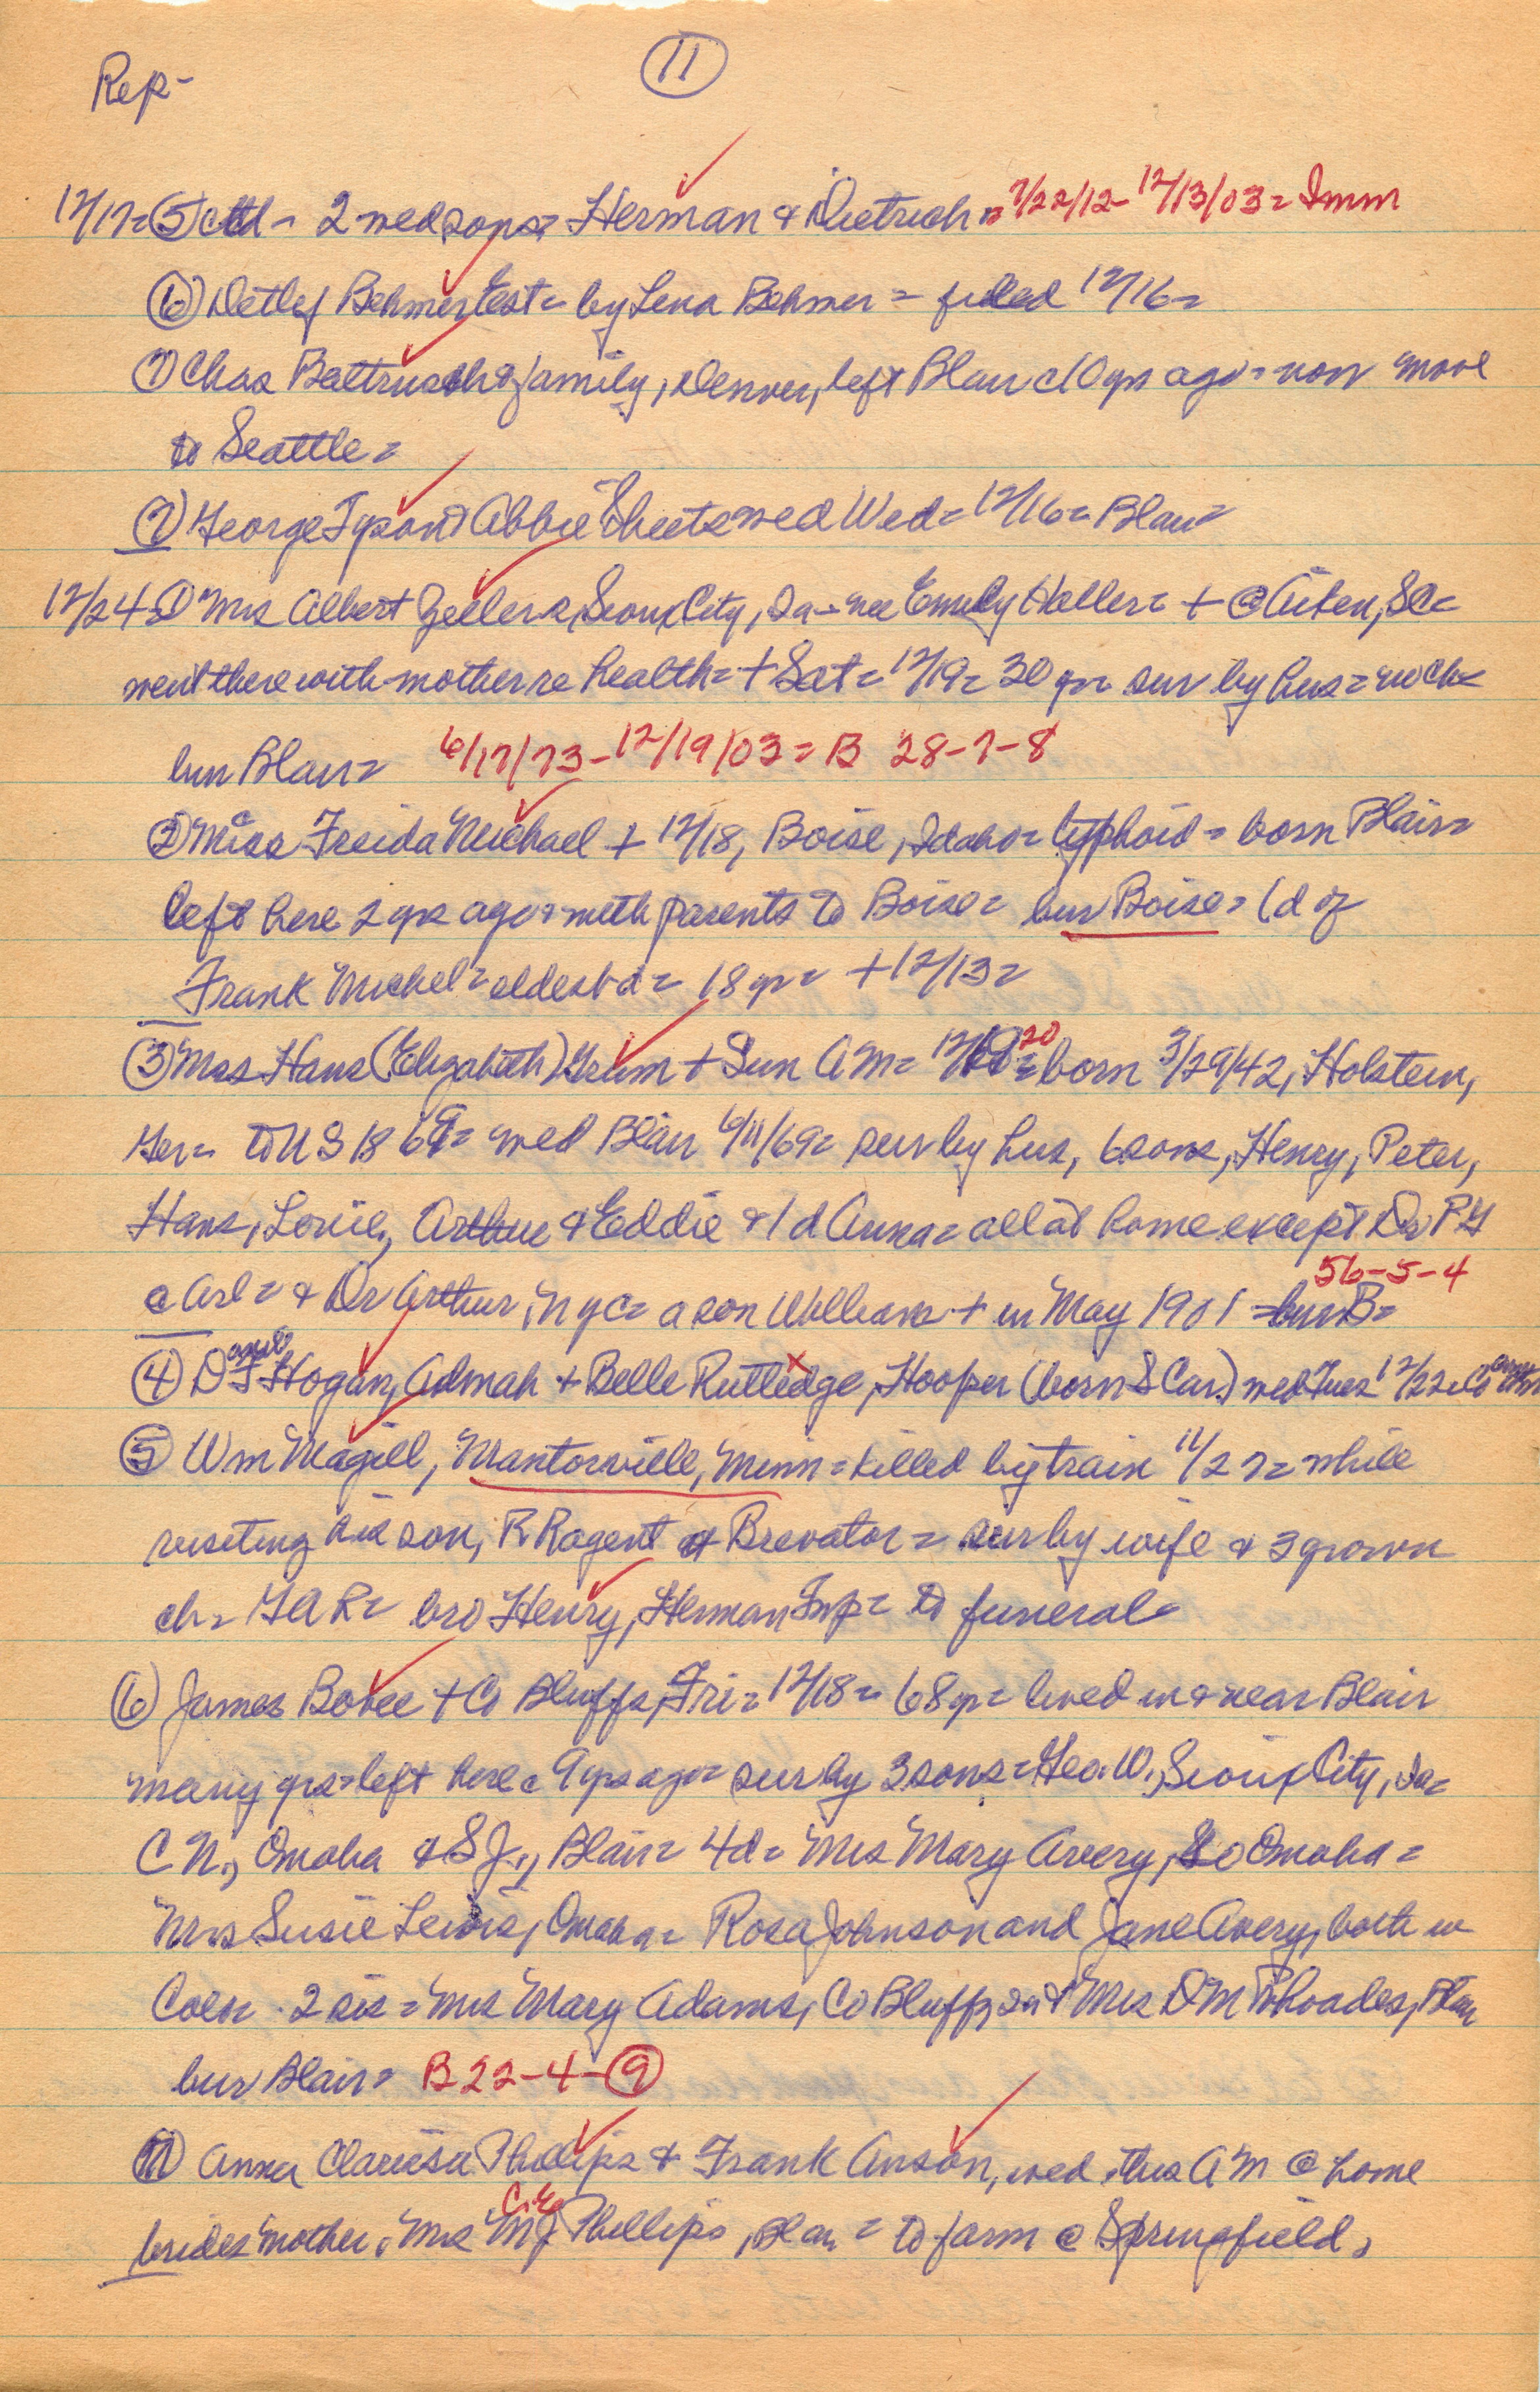 Rep- 11
12/17= 5 ctd - 2 wed sons= Herman & Dietrich = 7/22/12- 12/13/03= Imm
6 Detlef Behmer Est= by Lena Behmer = filed 12/16=
7 Chas Baltrusch & family, Denver, left Blair c10 yrs ago= now move
to Seattle=
7 George Tyson & Abbie Sheets wed Wed= 12/16= Blair=
12/24= 1 Mrs Albert Zellers, Sioux City, Ia - nee Emily Haller= + @ Aiken, SC=
went there with mother re health= + Sat= 12/19= 30 yr= sur by hus= no ch=
bur Blair= 6/17/73- 12/19/03= B 28-7-8
2 Miss Freida Michael + 12/18, Boise, Idaho= typhoid= born Blair=
left here 2 yrs ago= with parents to Boise= bur Boise= 1d of
Frank Michel= eldest d= 18 yr= +12/13=
3 Mrs Hans (Elizabeth) Grum + Sun AM= 12/20= born 3/29/42, Holstein,
Ger= to US 1869= wed Blair 6/11/69= sur by hus, 6 sons, Henry, Peter,
Hans, Louie, Arthur & Eddie & 1d Anna= all at home except Dr PG
@ Arl= & Dr Arthur, NYC= a son William + in May 1901 = bur B= 56-5-4
4 D F Hogan, Admah + Belle Rutledge, Hooper (born S Car.) wed Tues 12/22
5 Wm Magill, Mantorville, Minn= killed by train 11/27= while
visiting his son, RR agent @ Brevator= sur by wife & 3 grown
ch= GAR= bro Henry, Herman Twp= to funeral=
6 James Bovee + Co Bluffs, Fri= 12/18= 68 yr= lived in & near Blair
many yrs= left here c 9 yrs ago= sur by 3 sons= Geo. W., Sioux City, Ia=
C N., Omaha & S J., Blair= 4d= Mrs Mary Avery, So Omaha=
Mrs Susie Lewis, Omaha= Rosa Johnson and Jane Avery, both in
Colo= 2 sis= Mrs Mary Adams, Co Bluffs, Ia & Mrs D M Rhoades, Blair
bur Blair= B 22-4-9
7 Anna Clarissa Phillips & Frank Anson, wed this AM @ home
brides mother, Mrs C.E. MJ Phillips, Blair= to farm @ Springfield,